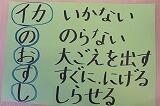 イカ いかない
の のらない
お 大ごえを出す
す すぐに、にげる
し しらせる